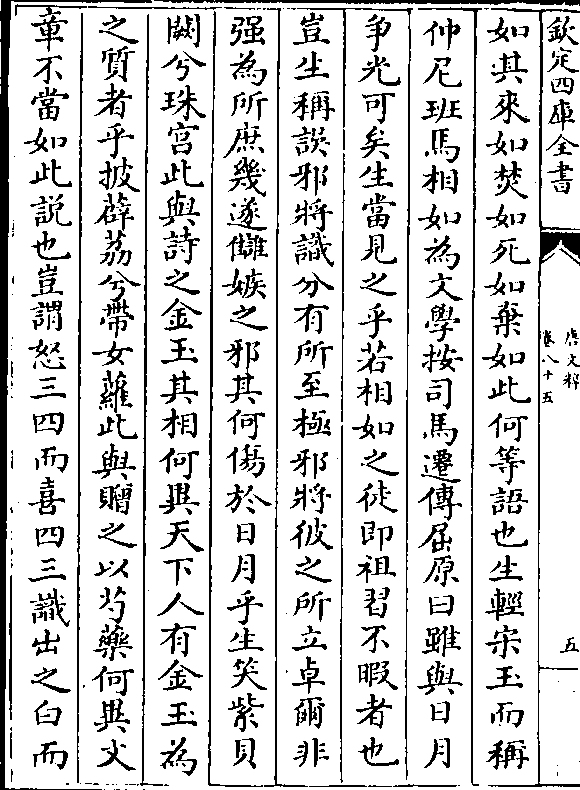 欽定四庫全書
唐文粹
卷八十五
五
如其來如焚如死如棄如此何等語也生輕宋玉而稱
仲尼班馬相如為文學按司馬遷傳屈原曰雖與日月
爭光可矣生當見之乎若相如之徒即祖習不暇者也
豈生稱誤邪將識分有所至極邪將彼之所立卓爾非
强為所庶幾遂讎嫉之邪其何傷於日月乎生笑紫貝
闕兮珠宫此與詩之金玉其相何異天下人有金玉為
之質者乎披薜荔兮帶女蘿此與贈之以芍藥何異文
章不當如此説也豈謂怒三四而喜四三識出之白而